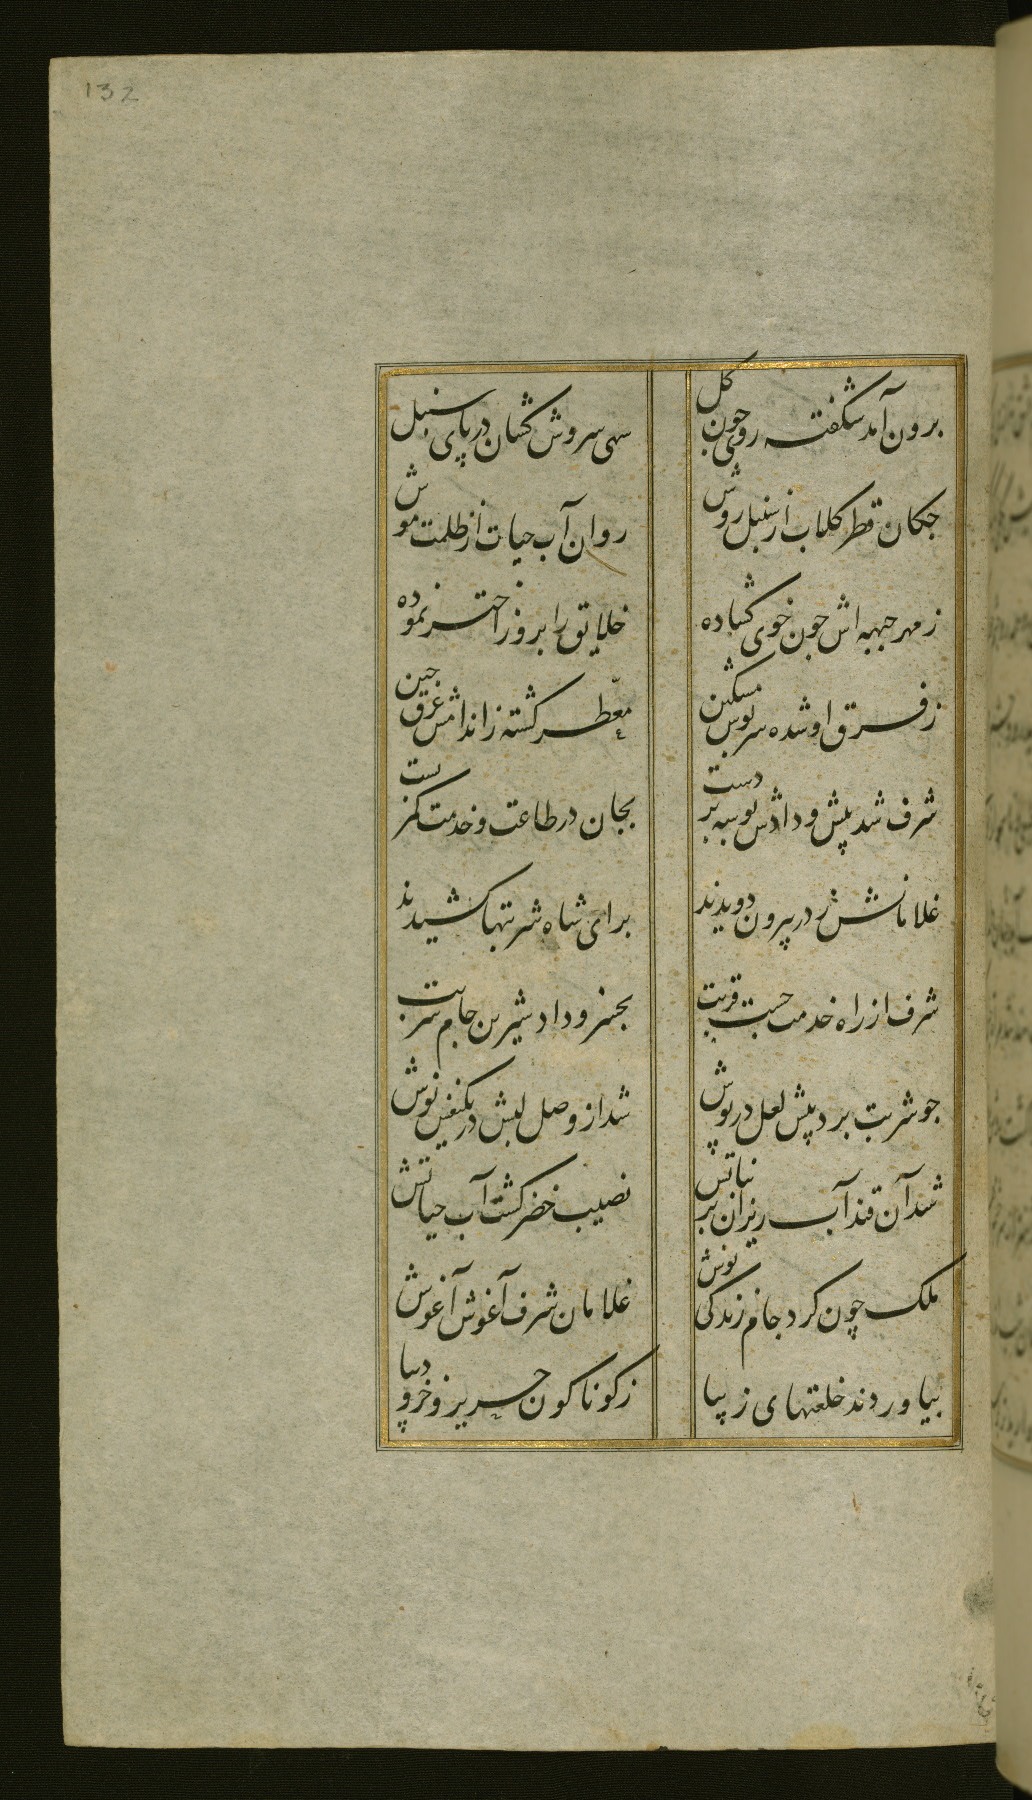 132
برون آمد شکفته روی چون کل
سهی سروش کشان در پای سنبل
جکان قطر کلاب از سنبل روش
روان آب حیات از ظلمت موش
ز مهر جبهه اش جون خوی کشاده
خلایق را بروز اختر نموده
ز فرق او شده سربوس مشکین
معطر کشته ز اندامش عرق جین
شرف شد پیش و دادش بوسه بر دست
بجان در طاعت و خدمت کمر بست
غلامانش ز در بیرون دویدند
برای شاه شربتها کشیدند
شرف از راه خدمت جست قربت
بخسرو داد شیرین جام شربت
جو شربت برد پیش لعل در پوش
شد از وصل لبش در یکنفس نوش
شد آن قند آب ریزان بر نباتش
نصیب خضر کشت آب حیاتش
ملک چون کرد جام زندکی نوش
غلامان شرف آغوش آغوش
بیاوردند خلعتهای زیبا
ز کوناکون حریر و خز و دیبا